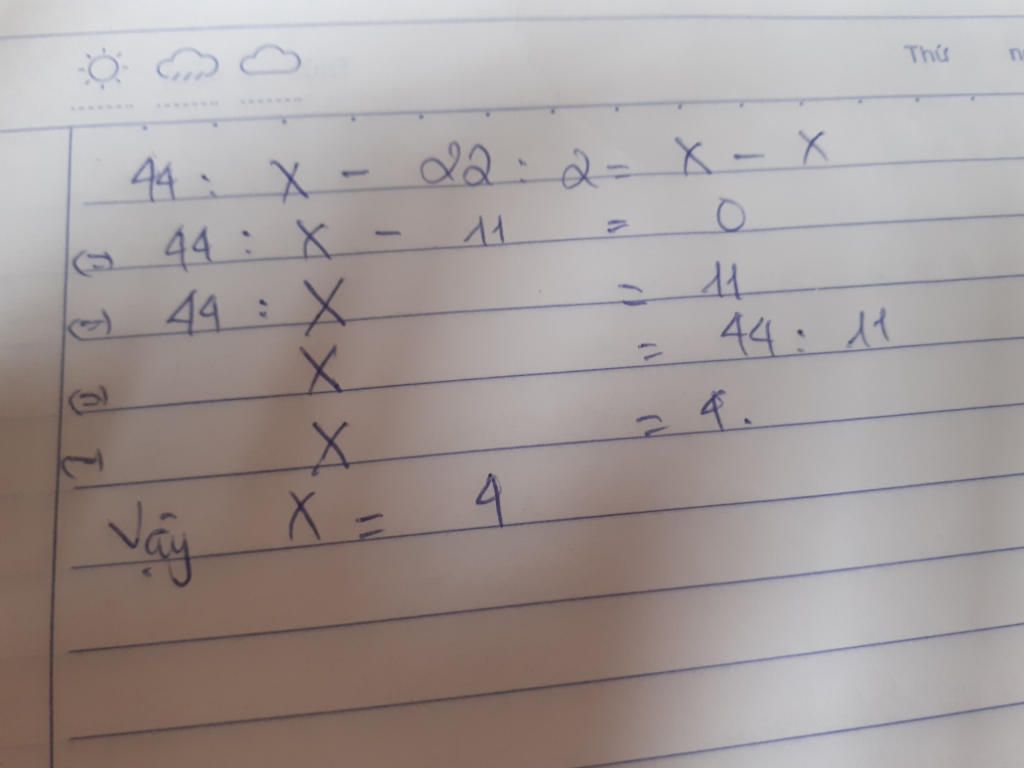 Thứ
44 : X - 22 : 2 = X - X
(=) 44 : X - 11 = 0
(=) 44 : X = 11
(=) X = 44 : 11
X = 4.
Vậy X = 4